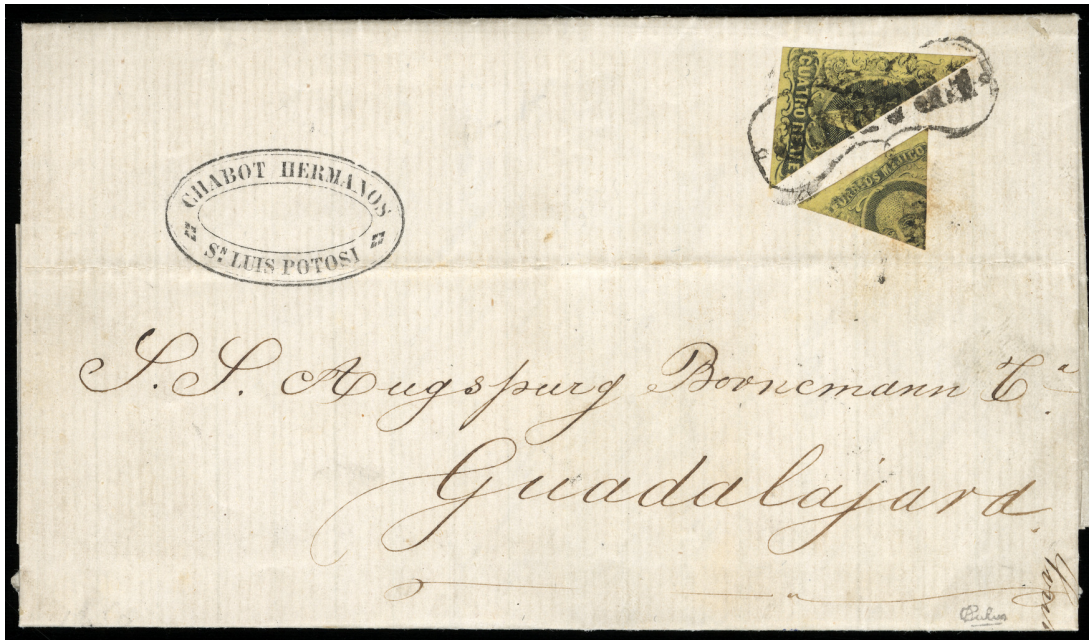 CHABOT HERMANOS
Sn. LUIS POTOSI
CUATRO REALE
CORREOS MEXICO
S. S. Augspurg Bornemann Ca.
Guadalajara